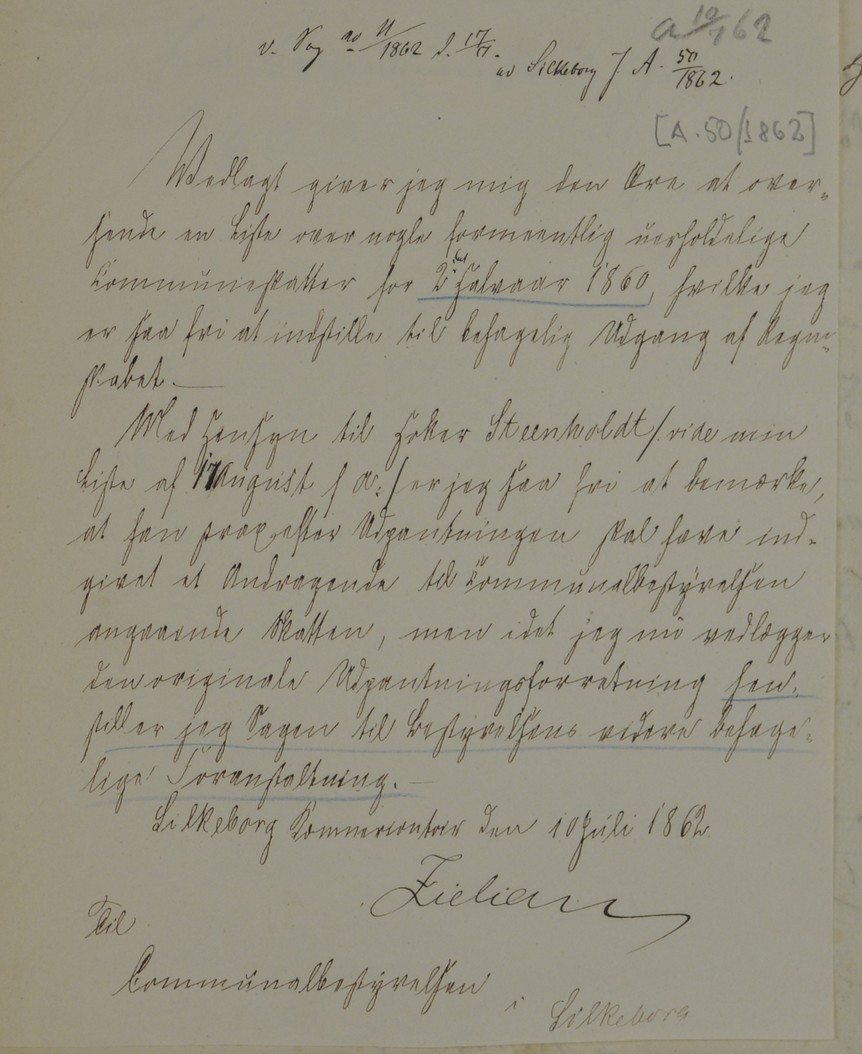 v. Sag no 11/1862 d. 17/7.
a 10/7 62
ad Silkeborg J. A. 50/1862.
[A. 50/1862]
Vedlagt giver jeg mig den Ære at over-
sende en Liste over nogle formeentlig uerholdelige
Communeskatter for 2det Halvaar 1860, hvilke jeg
er saa fri at indstille til behagelig Udgang af Regn-
skabet. —
Med Hensyn til Høker Steenholdt /: vide min
Liste af 17 August f. A. :/ er jeg saa fri at bemærke,
at han strax efter Udpantningen skal have ind-
givet et Andragende til Communalbestyrelsen
angaaende Skatten, men idet jeg nu vedlægger
den originale Udpantningsforretning hen-
stiller jeg Sagen til Bestyrelsens videre behage-
lige Foranstaltning. —
Silkeborg Kæmnercontoir den 10 Juli 1862
Zielian
Til
Communalbestyrelsen
i Silkeborg